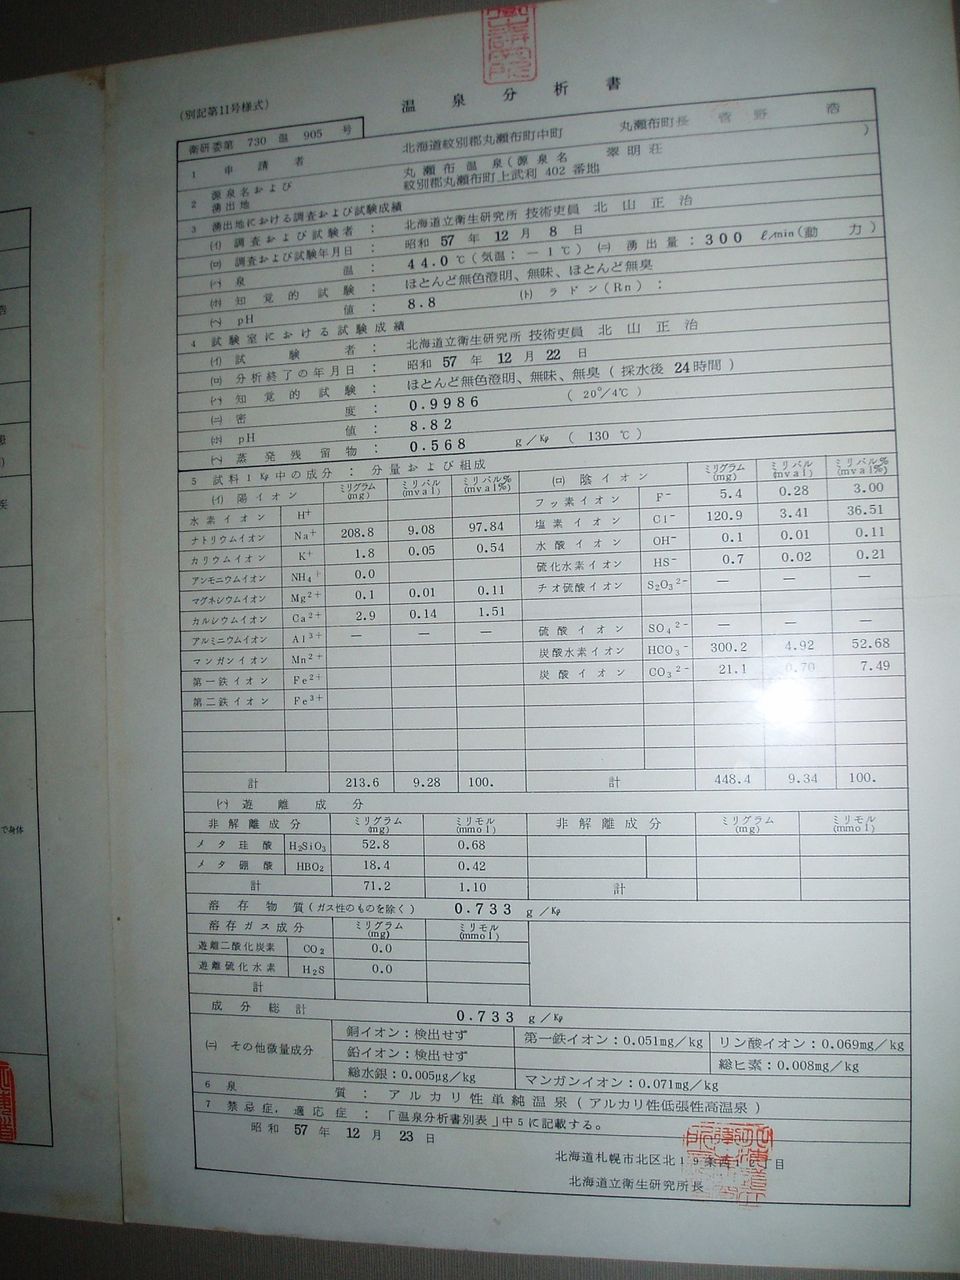 (別記第11号様式)
温泉分析書
衛研委第 730 温 905 号
1 申請者 北海道紋別郡丸瀬布町中町 丸瀬布町長 菅野 浩
2 源泉名および湧出地 丸瀬布温泉(源泉名 翠明荘)
紋別郡丸瀬布町上武利 402 番地
3 湧出地における調査および試験成績
(イ) 調査および試験者: 北海道立衛生研究所 技術吏員 北山正治
(ロ) 調査および試験年月日: 昭和 57 年 12 月 8 日
(ハ) 泉温: 44.0℃(気温:-1℃) (ニ) 湧出量:300 ℓ/min(動力)
(ホ) 知覚的試験: ほとんど無色澄明、無味、ほとんど無臭
(ヘ) pH値: 8.8 (ト) ラドン(Rn):
4 試験室における試験成績
(イ) 試験者: 北海道立衛生研究所 技術吏員 北山正治
(ロ) 分析終了の年月日: 昭和 57 年 12 月 22 日
(ハ) 知覚的試験: ほとんど無色澄明、無味、無臭(採水後 24時間)
(ニ) 密度: 0.9986 (20°/4℃)
(ホ) pH値: 8.82
(ヘ) 蒸発残留物: 0.568 g/Kg (130℃)
5 試料1Kg中の成分: 分量および組成
(イ) 陽イオン ミリグラム(mg) ミリバル(mval) ミリバル%(mval%) (ロ) 陰イオン ミリグラム(mg) ミリバル(mval) ミリバル%(mval%)
水素イオン H+ フッ素イオン F- 5.4 0.28 3.00
ナトリウムイオン Na+ 208.8 9.08 97.84 塩素イオン Cl- 120.9 3.41 36.51
カリウムイオン K+ 1.8 0.05 0.54 水酸イオン OH- 0.1 0.01 0.11
アンモニウムイオン NH4+ 0.0 硫化水素イオン HS- 0.7 0.02 0.21
マグネシウムイオン Mg2+ 0.1 0.01 0.11 チオ硫酸イオン S2O3 2- — — —
カルシウムイオン Ca2+ 2.9 0.14 1.51
アルミニウムイオン Al3+ — — — 硫酸イオン SO4 2- — — —
マンガンイオン Mn2+ 炭酸水素イオン HCO3- 300.2 4.92 52.68
第一鉄イオン Fe2+ 炭酸イオン CO3 2- 21.1 0.70 7.49
第二鉄イオン Fe3+
計 213.6 9.28 100. 計 448.4 9.34 100.
(ハ) 遊離成分
非解離成分 ミリグラム(mg) ミリモル(mmol) 非解離成分 ミリグラム(mg) ミリモル(mmol)
メタ珪酸 H2SiO3 52.8 0.68
メタ硼酸 HBO2 18.4 0.42
計 71.2 1.10 計
溶存物質(ガス性のものを除く) 0.733 g/Kg
溶存ガス成分 ミリグラム(mg) ミリモル(mmol)
遊離二酸化炭素 CO2 0.0
遊離硫化水素 H2S 0.0
計
成分総計 0.733 g/Kg
(ニ) その他微量成分
銅イオン:検出せず 第一鉄イオン:0.051mg/kg リン酸イオン:0.069mg/kg
鉛イオン:検出せず 総ヒ素:0.008mg/kg
総水銀:0.005μg/kg マンガンイオン:0.071mg/kg
6 泉質: アルカリ性単純温泉(アルカリ性低張性高温泉)
7 禁忌症,適応症: 「温泉分析書別表」中5に記載する。
昭和 57 年 12 月 23 日
北海道札幌市北区北19条西12丁目
北海道立衛生研究所長
で身体